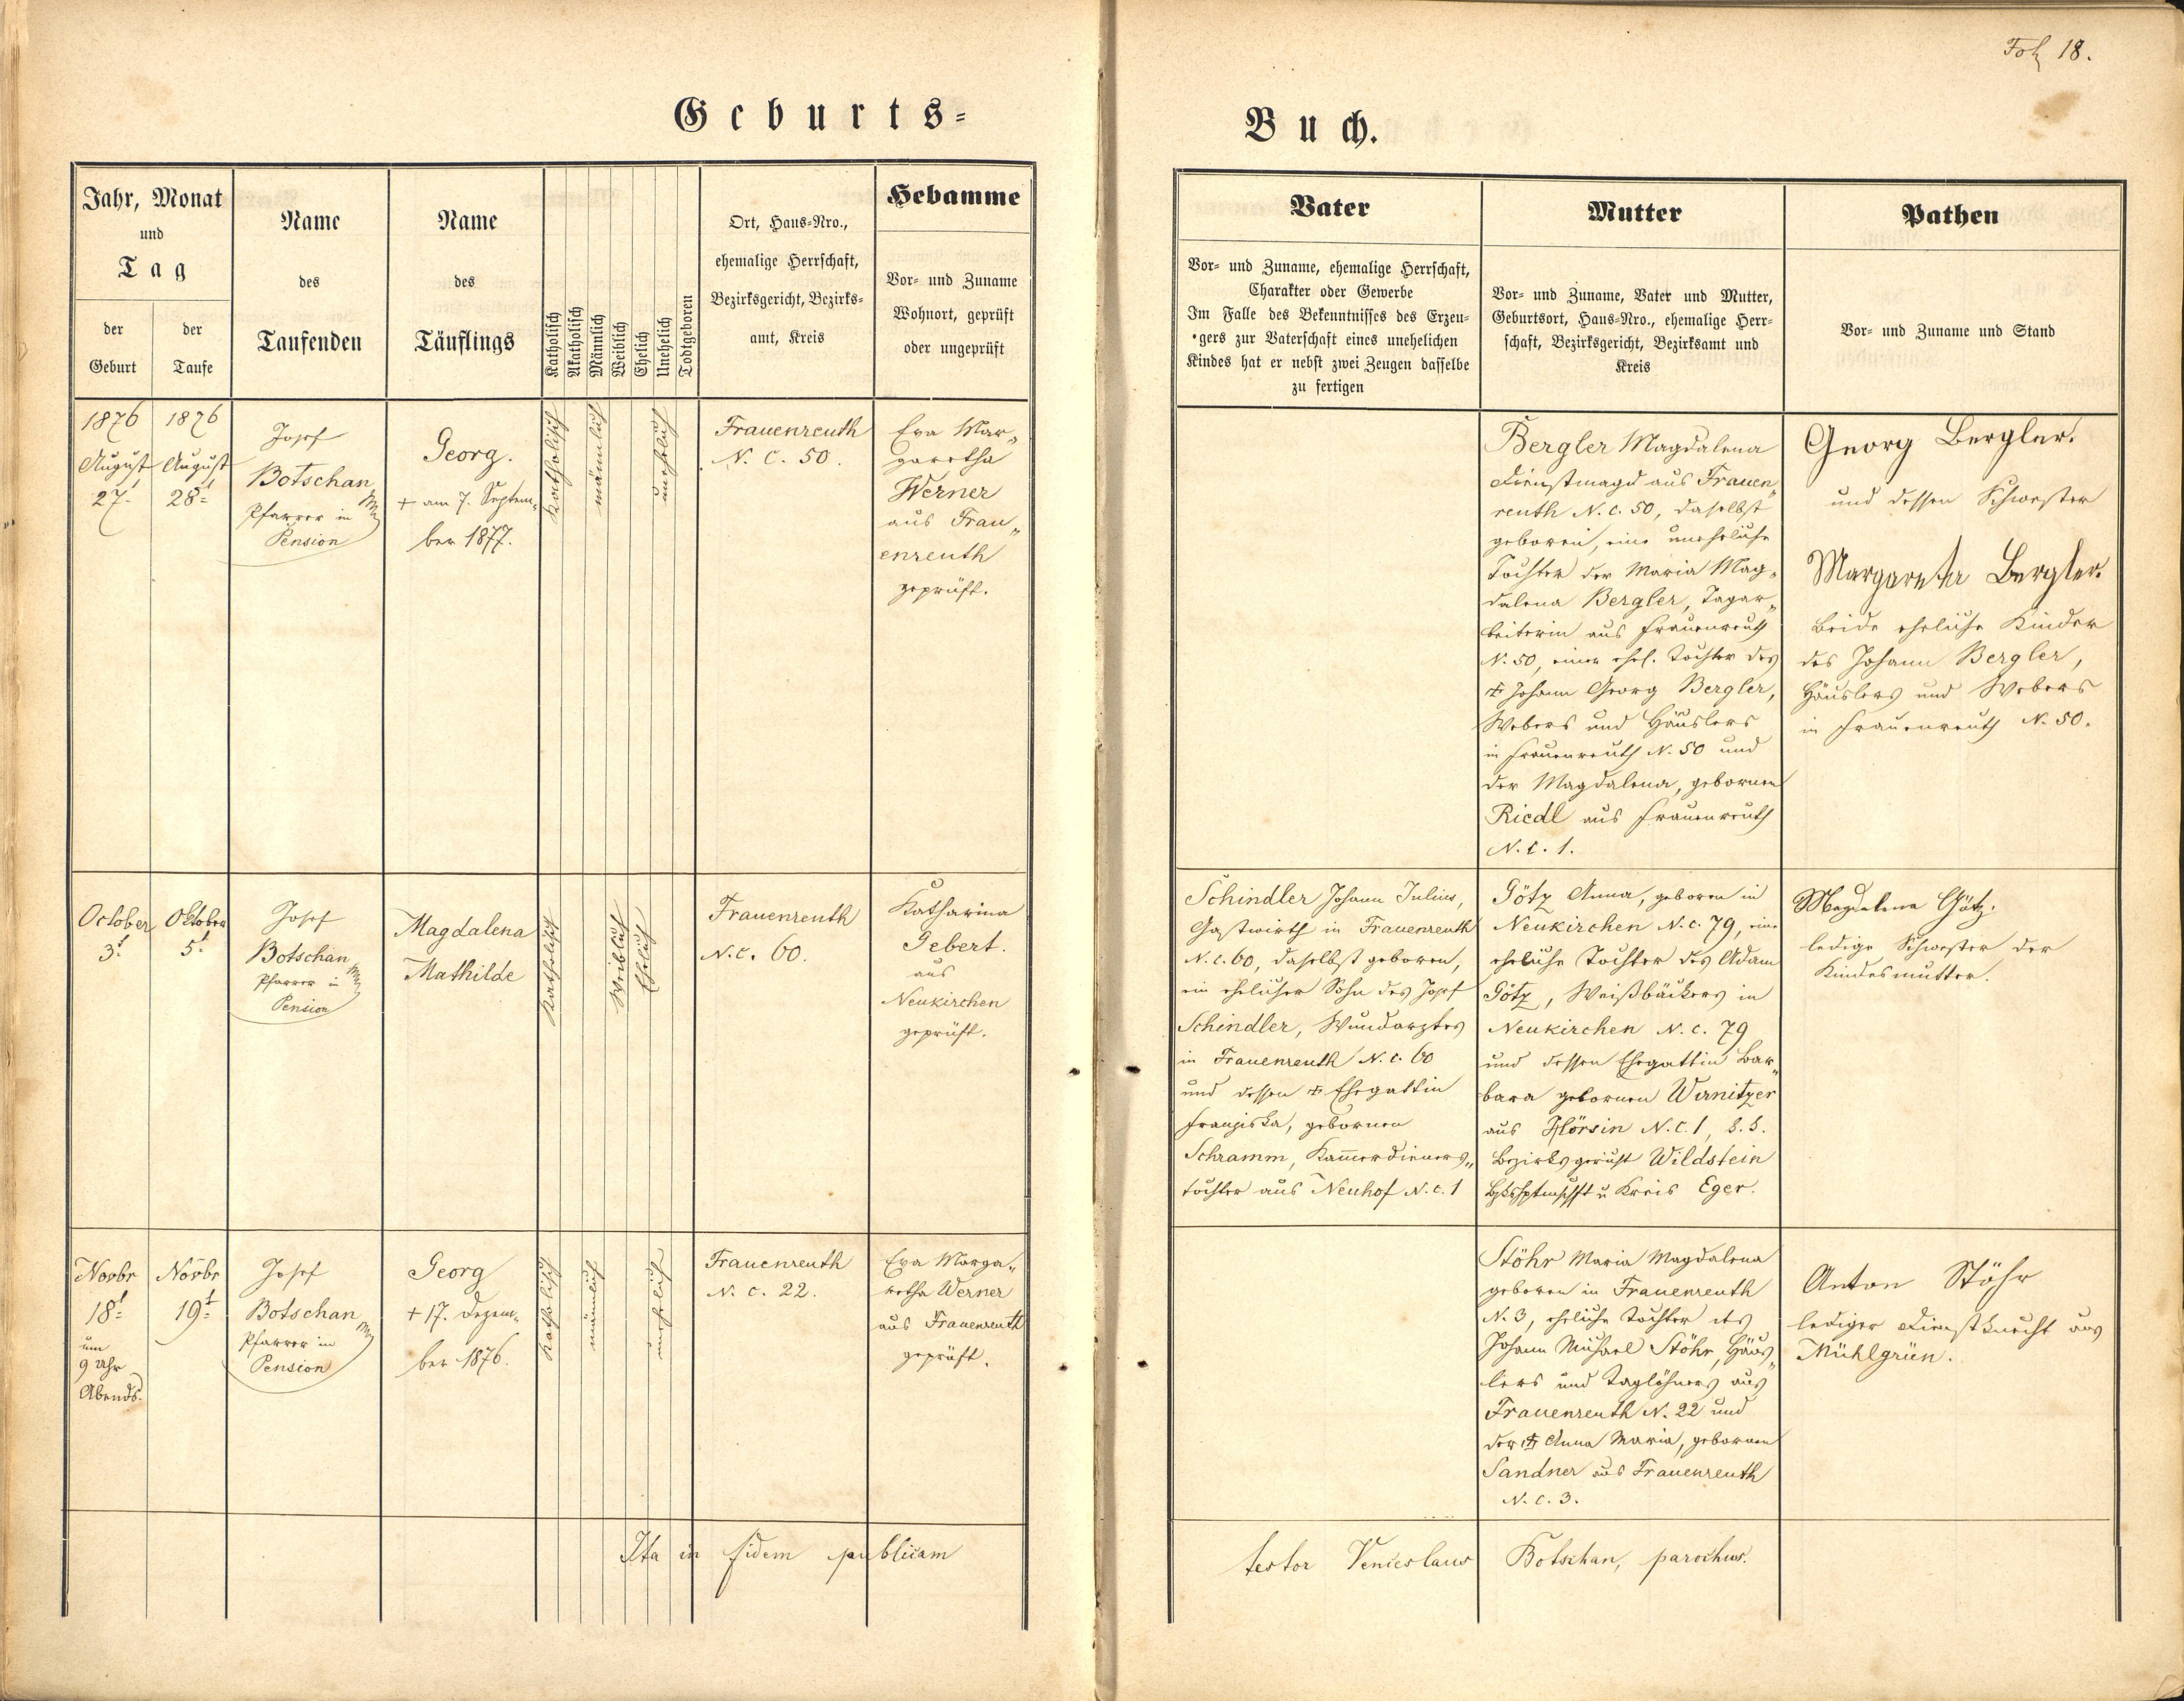 Fol 18.
Geburts=
Buch.
Jahr, Monat
und
Tag
der
Geburt
der
Taufe
Name
des
Taufenden
Name
des
Täuflings
Katholisch
Akatholisch
Männlich
Weiblich
Ehelich
Unehelich
Todtgeboren
Ort, Haus=Nro.,
ehemalige Herrschaft,
Bezirksgericht, Bezirks=
amt, Kreis
Hebamme
Vor= und Zuname
Wohnort, geprüft
oder ungeprüft
Vater
Vor= und Zuname, ehemalige Herrschaft,
Charakter oder Gewerbe
Im Falle des Bekenntnisses des Erzeu=
gers zur Vaterschaft eines unehelichen
Kindes hat er nebst zwei Zeugen dasselbe
zu fertigen
Mutter
Vor= und Zuname, Vater und Mutter,
Geburtsort, Haus=Nro., ehemalige Herr=
schaft, Bezirksgericht, Bezirksamt und
Kreis
Pathen
Vor= und Zuname und Stand
1876
August
27.
1876
August
28.
Josef
Botschan
Pfarrer in
Pension
Georg.
+ am 7. Septem„
ber 1877.
Katholisch
männlich
unehelich
Frauenreuth
N. C. 50.
Eva Mar„
garetha
Werner
aus Frau„
enreuth
geprüft.
Bergler Magdalena
Dienstmagd aus Frauen„
reuth N. c. 50, daselbst
geboren, eine uneheliche
Tochter der Maria Mag„
dalena Bergler, Tagar„
beiterin aus Frauenreuth
N. 50, einer ehel. Tochter des
Johann Georg Bergler,
Webers und Häuslers
in Frauenreuth N. 50 und
der Magdalena, gebornen
Riedl aus Frauenreuth
N. C. 1.
Georg Bergler.
und dessen Schwester
Margareta Bergler.
beide eheliche Kinder
des Johann Bergler,
Häuslers und Webers
in Frauenreuth N. 50.
October
3.
Oktober
5.
Josef
Botschan
Pfarrer in
Pension
Magdalena
Mathilde
Katholisch
Weiblich
Ehelich
Frauenreuth
N. c. 60.
Katharina
Gebert.
aus
Neukirchen
geprüft.
Schindler Johann Julius,
Gastwirth in Frauenreuth
N. c. 60, daselbst geboren,
ein ehelicher Sohn des Josef
Schindler, Wundarztes
in Frauenreuth N. c. 60
und dessen Ehegattin
Franziska, gebornen
Schramm, Kammerdieners„
tochter aus Neuhof N. c. 1
Götz Anna, geboren in
Neukirchen N. c. 79, eine
eheliche Tochter des Adam
Götz, Weißbäckers in
Neukirchen N. c. 79
und dessen Ehegattin Bar„
bara gebornen Wirnitzer
aus Hörsin N. C. 1,
Bezirksgericht Wildstein
u Kreis Eger.
Magdalena Götz.
ledige Schwester der
Kindesmutter.
Novbr
18
um
9 Uhr
Abends.
Novbr
19
Josef
Botschan
Pfarrer in
Pension
Georg
+ 17. Dezem„
ber 1876.
Katholisch
männlich
unehelich
Frauenreuth
N. c. 22.
Eva Marga„
retha Werner
aus Frauenreuth
geprüft.
Stöhr Maria Magdalena
geboren in Frauenreuth
N. 3, eheliche Tochter des
Johann Michael Stöhr, Häus„
lers und Taglöhners aus
Frauenreuth N. 22 und
der Anna Maria, gebornen
Sandner aus Frauenreuth
N. c. 3.
Anton Stöhr
lediger Dienstknecht aus
Mühlgrün.
Ita in fidem publicam
testor Venceslaus Botschan, parochus.